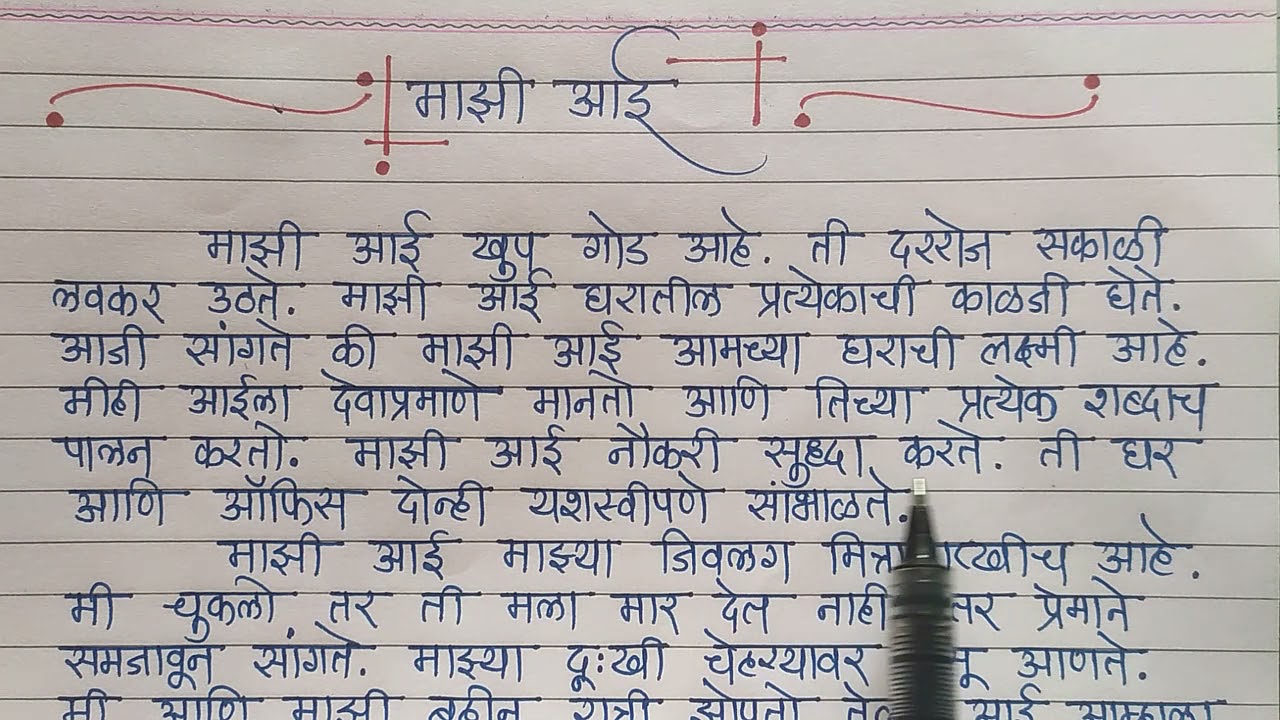 माझी आई
माझी आई खुप गोड आहे. ती दररोज सकाळी
लवकर उठते. माझी आई घरातील प्रत्येकाची काळजी घेते.
आजी सांगते की माझी आई आमच्या घराची लक्ष्मी आहे.
मीही आईला देवाप्रमाणे मानतो आणि तिच्या प्रत्येक शब्दाच
पालन करतो. माझी आई नौकरी सुध्दा करते. ती घर
आणि ऑफिस दोन्ही यशस्वीपणे सांभाळते.
माझी आई माझ्या जिवलग आहे.
मी चुकलो तर ती मला मार देत नाही तर प्रेमाने
समजावून सांगते. माझ्या दूःखी चेहऱ्यावर आणते.
मी आणि माझी बहीन रात्री झोपतो आई आम्हाला